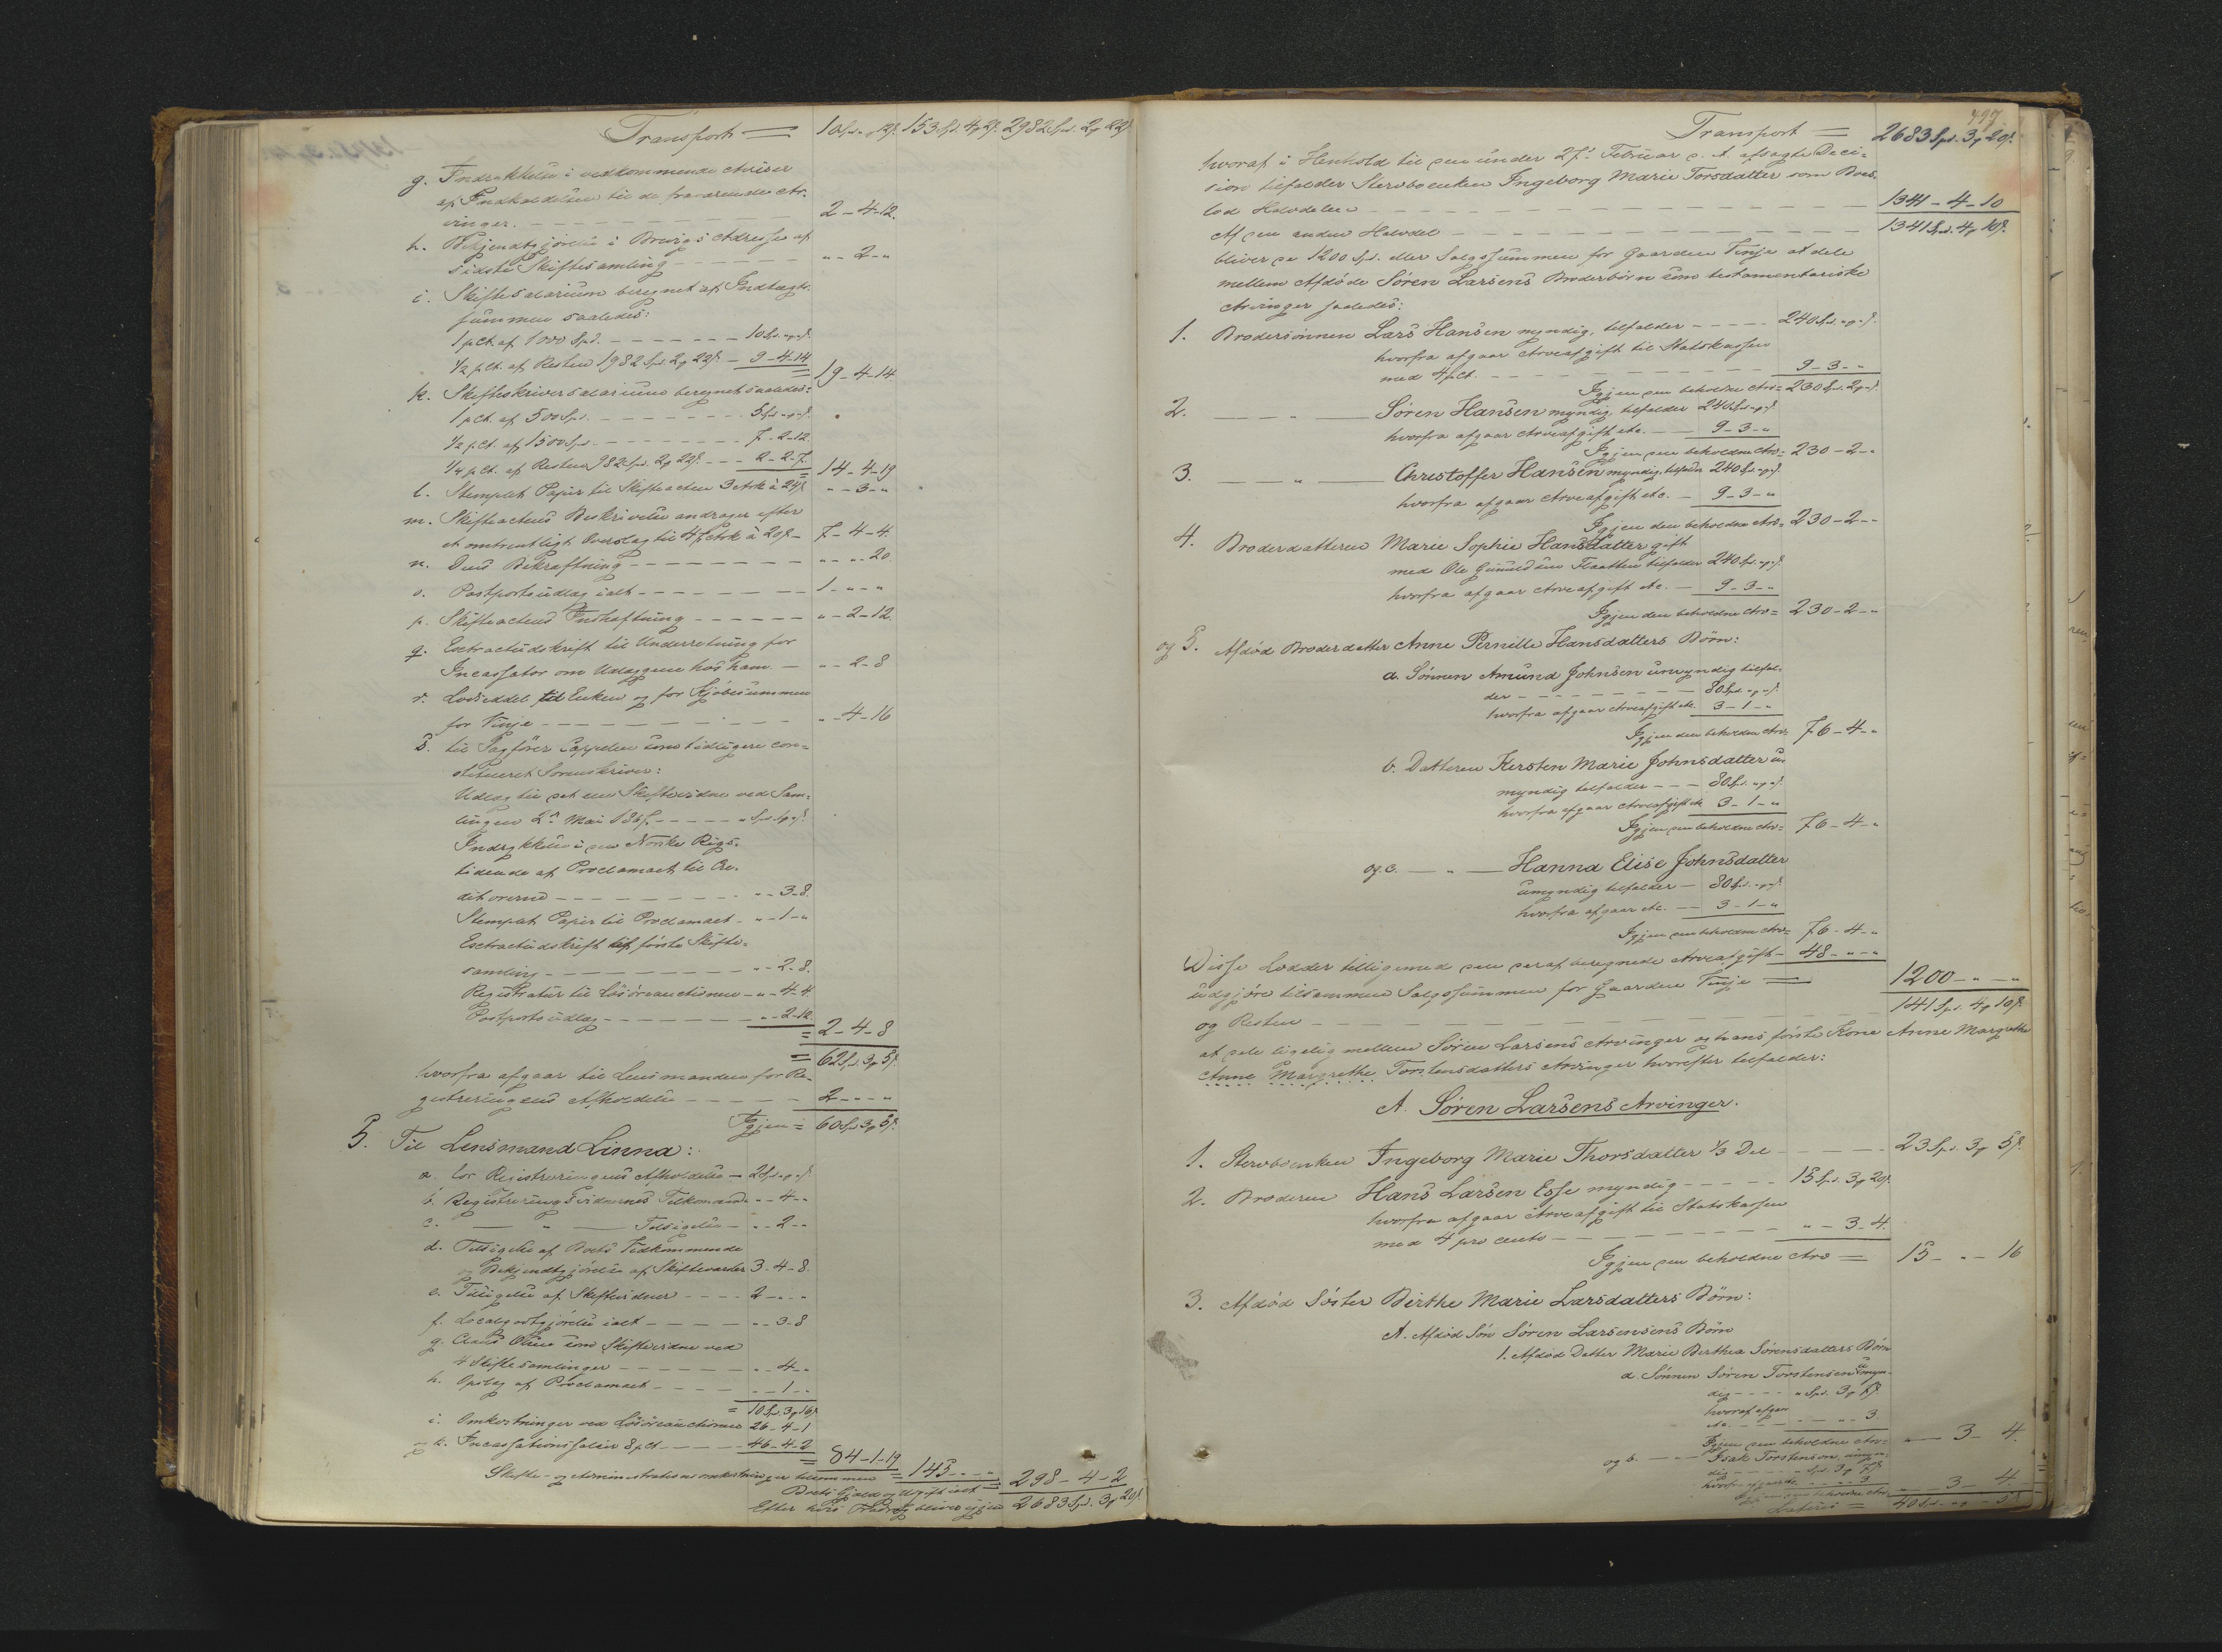 Transport = 10 Spd. " 12 ß. 153 Spd. 4 ₰ 2 ß. 2982 Spd. 2 ₰ 22 ß.
g. Indrykkelse i vedkommende Aviser
af Indkaldelsen til de fraværende Ar-
vinger. - - - 2 - 4 - 12.
h. Bekjendtgjørelse i Brevigs Adresse af
sidste Skiftesamling - - - " - 2 - "
i. Skiftesalarium beregnet af Indtægts-
summen saaledes:
1 pCt. af 1000 Spd. - - - 10 Spd. " ₰ " ß.
1/2 pCt. af Resten 1982 Spd. 2 ₰ 22 ß. - 9 - 4 - 14
= 19 - 4 - 14
k. Skifteskriversalarium beregnet saaledes:
1 pCt. af 500 Spd. - - - 5 Spd. " ₰ " ß.
1/2 pCt. af 1500 Spd. - - - 7 - 2 - 12.
1/4 pCt. af Resten 982 Spd. 2 ₰ 22 ß. - - 2 - 2 - 7.
= 14 - 4 - 19
l. Stemplet Papir til Skifteacten 3 Ark à 24 ß. " - 3 - "
m. Skifteactens Beskrivelse andrager efter
et omtrentligt Overslag til 47 Ark à 20 ß. - 7 - 4 - 4.
n. Dens Bekræftning - - - " - " - 20.
o. Postportoudlæg ialt - - - 1 - " - "
p. Skifteactens Indhæftning - - - " - 2 - 12.
q. Extractudskrift til Underretning for
Incassator om Udlæggene hos ham. - " - 2 - 8
r. Lodseddel til Enken og for Kjøbesummen
for Vinje - - - " - 4 - 16
s. til Sagfører Cappelen som tidligere con-
stitueret Sorenskriver:
Udlæg til det ene Skiftevidne ved Sam-
lingen 2den Mai 1867. - - - " Spd. 1 ₰ " ß.
Indrykkelse i den Norske Rigs-
tidende af Proclamaet til Cre-
ditorerne - - - " - 3 - 8.
Stemplet Papir til Proclamaet - " - 1 - "
Extractudskrift af første Skifte-
samling - - - " - 2 - 8.
Registratur til Løsøreauctionen - " - 4 - 4.
Postportoudlæg - - - " - 2 - 12.
= 2 - 4 - 8
= 62 Spd. 3 ₰ 5 ß.
hvorfra afgaar til Lensmanden for Re-
gistreringens Afholdelse - - - 2 - " - "
Igjen = 60 Spd. 3 ₰ 5 ß.
5. Til Lensmand Linna:
a. for Registreringens Afholdelse - 2 Spd. " ₰ " ß.
b. Registrering Vidnernes Tilkommende " - 4 - "
c. — " — Tilsigelse - " - 2 - "
d. Tilsigelse af Boets Vedkommende
og Bekjendtgjørelse af Skiftevarsler 3 - 4 - 8.
e. Tilsigelse af Skiftevidner - - - 2 - " - "
f. Localgodtgjørelse ialt - - - " - 3 - 8
g. Claus Olsen som Skiftevidne ved
4 Skiftesamlinger - - - " - 4 - "
h. Opslag af Proclamaet - - - " - 1 - "
= 10 Spd. 3 ₰ 16 ß.
i. Omkostninger ved Løsøreauctionen 26 - 4 - 1
og k. Incassationssalair 8 pCt. - - - 46 - 4 - 2
= 84 - 1 - 19
Skifte- og Administrationsomkostninger tilsammen = 145 - " - "
Boets Gjæld og Udgift ialt = 298 - 4 - 2
Efter hvis Fradrag bliver igjen 2683 Spd. 3 ₰ 20 ß.
497.
Transport = 2683 Spd. 3 ₰ 20 ß.
hvoraf i Henhold til den under 27de Februar d. A. afsagte Deci-
sion tilfalder Stervboenken Ingeborg Marie Torsdatter som Boes-
lod Halvdelen - - - 1341 - 4 - 10
Af den anden Halvdel - - - 1341 Spd. 4 ₰ 10 ß.
bliver de 1200 Spd. eller Salgssummen for Gaarden Vinje at dele
mellem Afdøde Søren Larsens Broderbørn som testamentariske
Arvinger saaledes:
1. Brodersønnen Lars Hansen myndig, tilfalder - - - 240 Spd. " ₰ " ß.
hvorfra afgaar Arveafgift til Statskassen
med 4 pCt. - - - 9 - 3 - "
Igjen den beholdne Arv = 230 Spd. 2 ₰ " ß.
2. — " — Søren Hansen myndig, tilfalder 240 Spd. " ₰ " ß.
hvorfra afgaar Arveafgift etc. - - 9 - 3 - "
Igjen den beholdne Arv = 230 - 2 - "
3. — " — Christoffer Hansen myndig, tilfalder 240 Spd. " ₰ " ß.
hvorfra afgaar Arveafgift etc. - 9 - 3 - "
Igjen den beholdne Arv = 230 - 2 - "
4. Broderdatteren Marie Sophie Hansdatter gift
med Ole Gunuldsen Flaatten tilfalder 240 Spd. " ₰ " ß.
hvorfra afgaar Arveafgift etc. - 9 - 3 - "
Igjen den beholdne Arv = 230 - 2 - "
og 5. Afdød Broderdatter Anne Pernille Hansdatters Børn:
a. Sønnen Amund Johnsen umyndig tilfal-
der - - - 80 Spd. " ₰ " ß.
hvorfra afgaar Arveafgift etc. 3 - 1 - "
Igjen den beholdne Arv = 76 - 4 - "
b. Datteren Kirsten Marie Johnsdatter u-
myndig tilfalder - - - 80 Spd. " ₰ " ß.
hvorfra afgaar Arveafgift etc. 3 - 1 - "
Igjen den beholdne Arv = 76 - 4 - "
og c. — " — Hanna Elise Johnsdatter
umyndig tilfalder - 80 Spd. " ₰ " ß.
hvorfra afgaar etc. - - 3 - 1 - "
Igjen den beholdne Arv = 76 - 4 - "
Disse Lodder tilligemed den deraf beregnede Arveafgift - 48 - " - "
udgjøre tilsammen Salgssummen for Gaarden Vinje = 1200 - " - "
og Resten - - - 141 Spd. 4 ₰ 10 ß.
at dele ligelig mellem Søren Larsens Arvinger og hans første Kone Anne Margrethe
Anne Margrethe Torstensdatters Arvinger hvorefter tilfalder:
A. Søren Larsens Arvinger.
1. Stervboenken Ingeborg Marie Thorsdatter 1/3 Del - - - 23 Spd. 3 ₰ 5 ß.
2. Broderen Hans Larsen Esse myndig - - - 15 Spd. 3 ₰ 20 ß.
hvorfra afgaar Arveafgift til Statskassen
med 4 pro cento - - - " - 3 - 4.
Igjen den beholdne Arv = 15 - " - 16
3. Afdød Søster Birthe Marie Larsdatters Børn:
A. Afdød Søn Søren Larsensens Børn
1. Afdød Datter Marie Berthea Sørensdatters Børn
a. Sønnen Søren Torstensen umyn-
dig - - - " Spd. 3 ₰ 7 ß.
hvoraf afgaar
etc. - - - " - " - 3.
Igjen den beholdne Arv = " - 3 - 4.
og b. — " — Isak Torstensen umyn-
dig - - - " Spd. 3 ₰ 7 ß.
- 3
Igjen den beholdne Arv " - 3 - 4
Lateris = 40 Spd. " ₰ 5 ß.